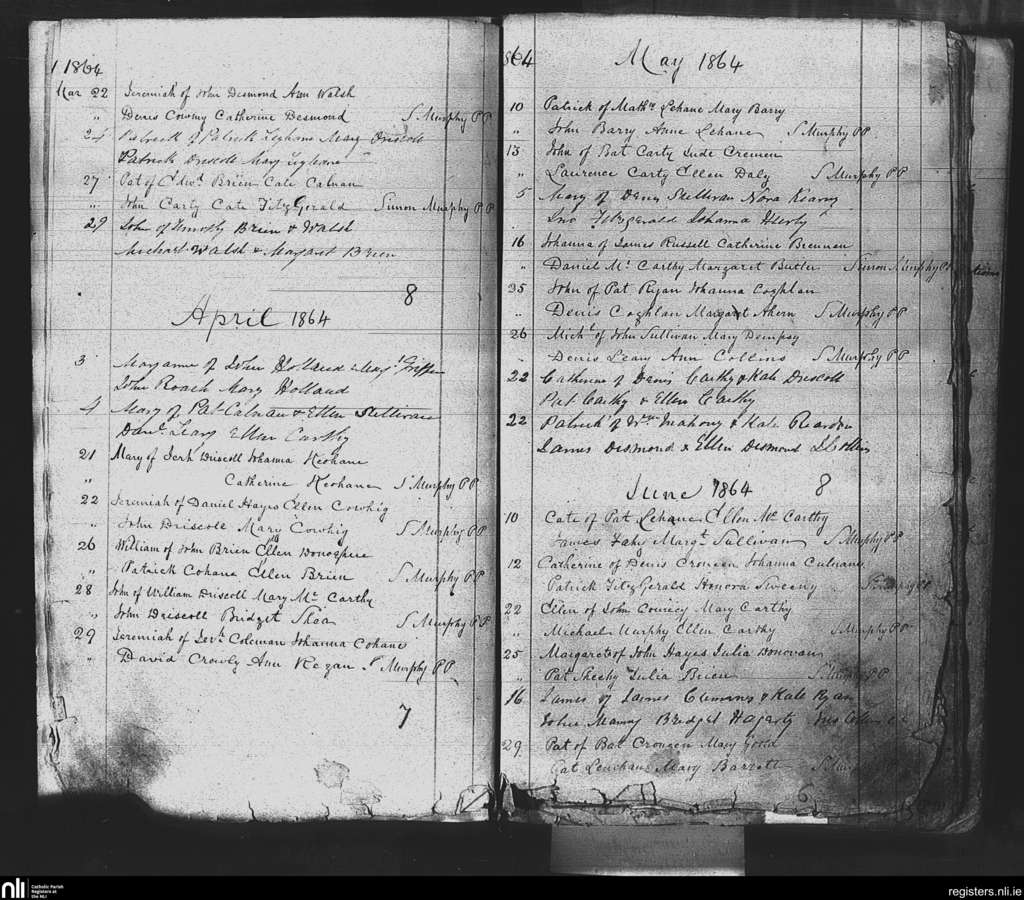 1864
Mar 22 Jeremiah of John Desmond Ann Walsh
" Denis Cowmy Catherine Desmond S Murphy PP
24 Patrick of Patrick Leghane Mary Driscoll
Patrick Driscoll Mary Leghane
27 Pat of Edwd Brien Cate Calnan
" John Carty Cate FitzGerald Simon Murphy PP
29 John of Timothy Brien & Walsh
Michael Walsh & Margaret Brien
8
April 1864
3 Maryanne of John Holland & Mary Griffin
John Roach Mary Holland
4 Mary of Pat Calnan & Ellen Sullivan
Danl Leary Ellen Carthy
21 Mary of Jerh Driscoll Johanna Keohane
" Catherine Keohane S Murphy PP
22 Jeremiah of Daniel Hayes Ellen Cowhig
" John Driscoll Mary Cowhig S Murphy PP
26 William of John Brien Ellen Donoghue
" Patrick Cohane Ellen Brien S Murphy PP
28 John of William Driscoll Mary Mc Carthy
" John Driscoll Bridget Shea S Murphy PP
29 Jeremiah of Jerh Coleman Johanna Cohane
" David Crowly Ann Regan S Murphy PP
7
1864
May 1864
10 Patrick of Mathw Lehane Mary Barry
" John Barry Anne Lehane S Murphy PP
13 John of Bat Carty Jude Cremen
" Laurence Carty Ellen Daly S Murphy PP
5 Mary of Denis Sullivan Nora
Jno Fitzgerald Johanna
16 Johanna of James Russell Catherine Brennan
" Daniel Mc Carthy Margaret Butler Simon Murphy PP
25 John of Pat Ryan Johanna Coghlan
" Denis Coghlan Margaret Ahern S Murphy PP
26 Michl of John Sullivan Mary Dempsy
Denis Leary Ann Collins S Murphy PP
22 Catherine of Denis Carthy & Kate Driscoll
Pat Carthy & Ellen Carthy
22 Patrick of Wm Mahony & Kate Reardon
James Desmond & Ellen Desmond
8
June 1864
10 Cate of Pat Lehane Ellen Mc Carthy
James Fahy Margt Sullivan S Murphy PP
12 Catherine of Denis Croneen Johanna Culnane
Patrick FitzGerald Honora Sweeny
22 Ellen of John Courcey Mary Carthy
" Michael Murphy Ellen Carthy S Murphy PP
25 Margaret of John Hayes Julia Donovan
" Pat Sheehy Julia Brien S Murphy PP
16 James of James Cummins & Kate Ryan
John Manny Bridget Hagarty
29 Pat of Bat Croneen Mary Good
Pat Leuchane Mary Barrett
6
nli
Catholic Parish
Registers at
the NLI
registers.nli.ie